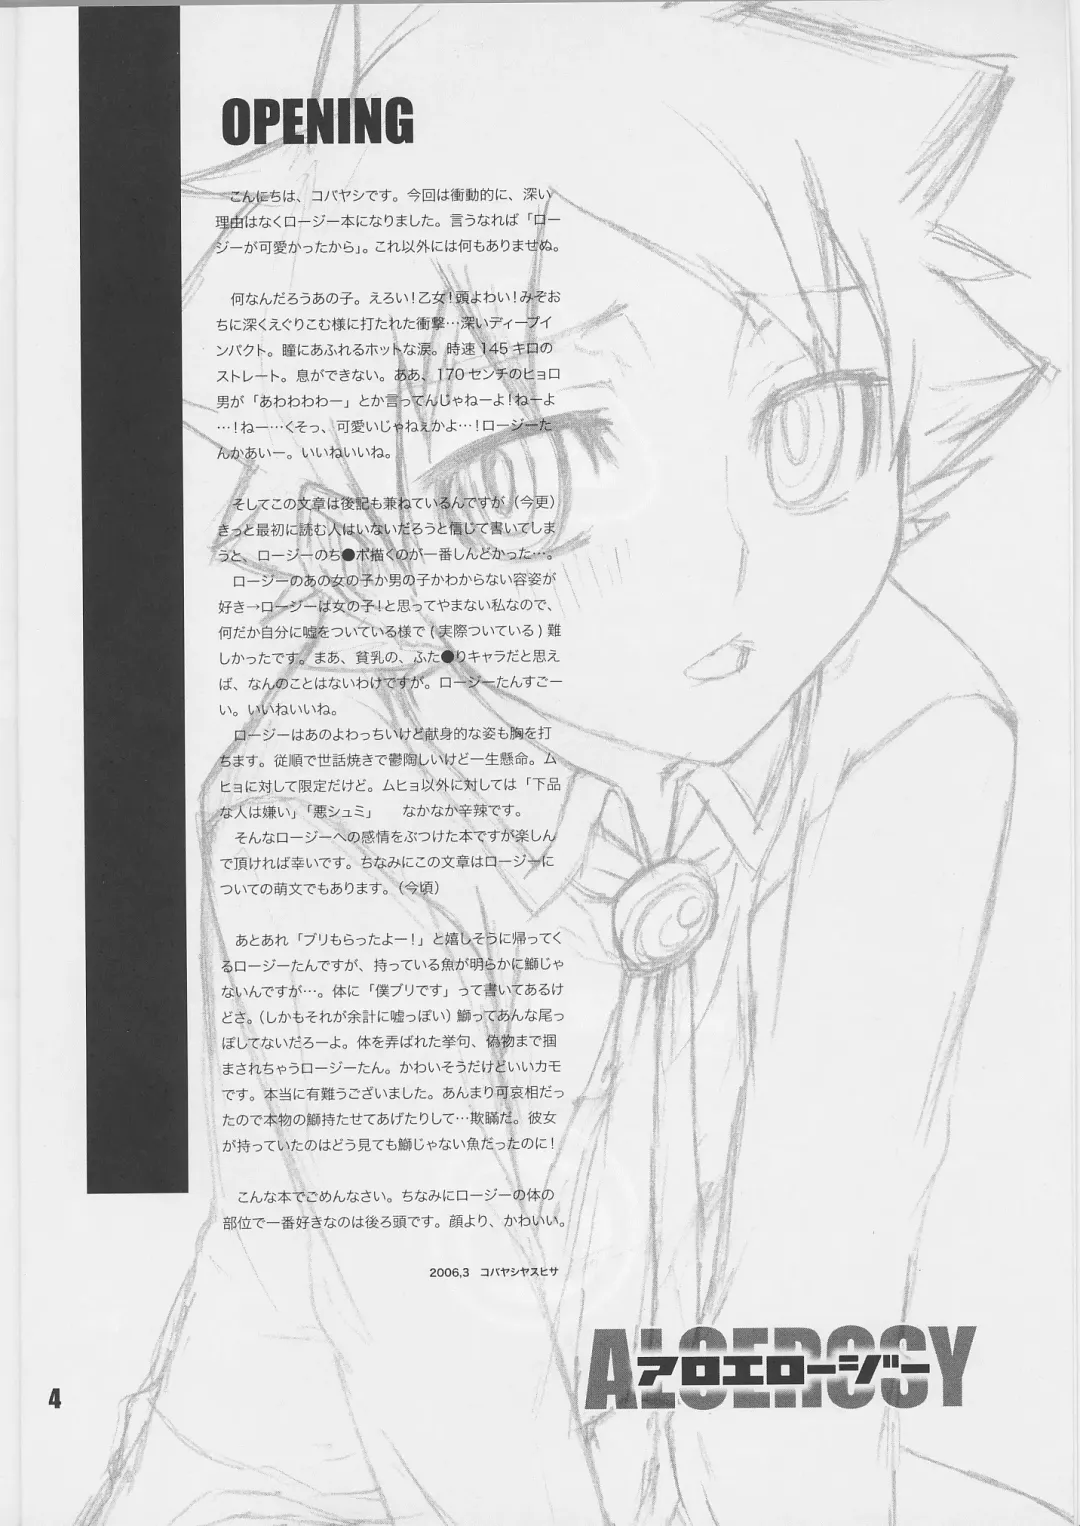 OPENING
こんにちは、コバヤシです。今回は衝動的に、深い
理由はなくロージー本になりました。言うなれば「ロー
ジーが可愛かったから」。これ以外には何もありませぬ。
何なんだろうあの子。えろい！乙女！頭よわい！みぞお
ちに深くえぐりこむ様に打たれた衝撃…深いディープイ
ンパクト。瞳にあふれるホットな涙。時速 145 キロの
ストレート。息ができない。ああ、170 センチのヒョロ
男が「あわわわわー」とか言ってんじゃねーよ！ねーよ
…！ねー…くそっ、可愛いじゃねぇかよ…！ロージーた
んかあいー。いいねいいね。
そしてこの文章は後記も兼ねているんですが（今更）
きっと最初に読む人はいないだろうと信じて書いてしま
うと、ロージーのち●ポ描くのが一番しんどかった…。
ロージーのあの女の子か男の子かわからない容姿が
好き→ロージーは女の子！と思ってやまない私なので、
何だか自分に嘘をついている様で ( 実際ついている ) 難
しかったです。まあ、貧乳の、ふた●りキャラだと思え
ば、なんのことはないわけですが。ロージーたんすごー
い。いいねいいね。
ロージーはあのよわっちいけど献身的な姿も胸を打
ちます。従順で世話焼きで鬱陶しいけど一生懸命。ム
ヒョに対して限定だけど。ムヒョ以外に対しては「下品
な人は嫌い」「悪シュミ」　なかなか辛辣です。
そんなロージーへの感情をぶつけた本ですが楽しん
で頂ければ幸いです。ちなみにこの文章はロージーに
ついての萌文でもあります。（今頃）
あとあれ「ブリもらったよー！」と嬉しそうに帰ってく
るロージーたんですが、持っている魚が明らかに鰤じゃ
ないんですが…。体に「僕ブリです」って書いてあるけ
どさ。（しかもそれが余計に嘘っぽい）鰤ってあんな尾っ
ぽしてないだろーよ。体を弄ばれた挙句、偽物まで掴
まされちゃうロージーたん。かわいそうだけどいいカモ
です。本当に有難うございました。あんまり可哀相だっ
たので本物の鰤持たせてあげたりして…欺瞞だ。彼女
が持っていたのはどう見ても鰤じゃない魚だったのに！
こんな本でごめんなさい。ちなみにロージーの体の
部位で一番好きなのは後ろ頭です。顔より、かわいい。
2006,3　コバヤシヤスヒサ
ALOEROSY
アロエロージー
4